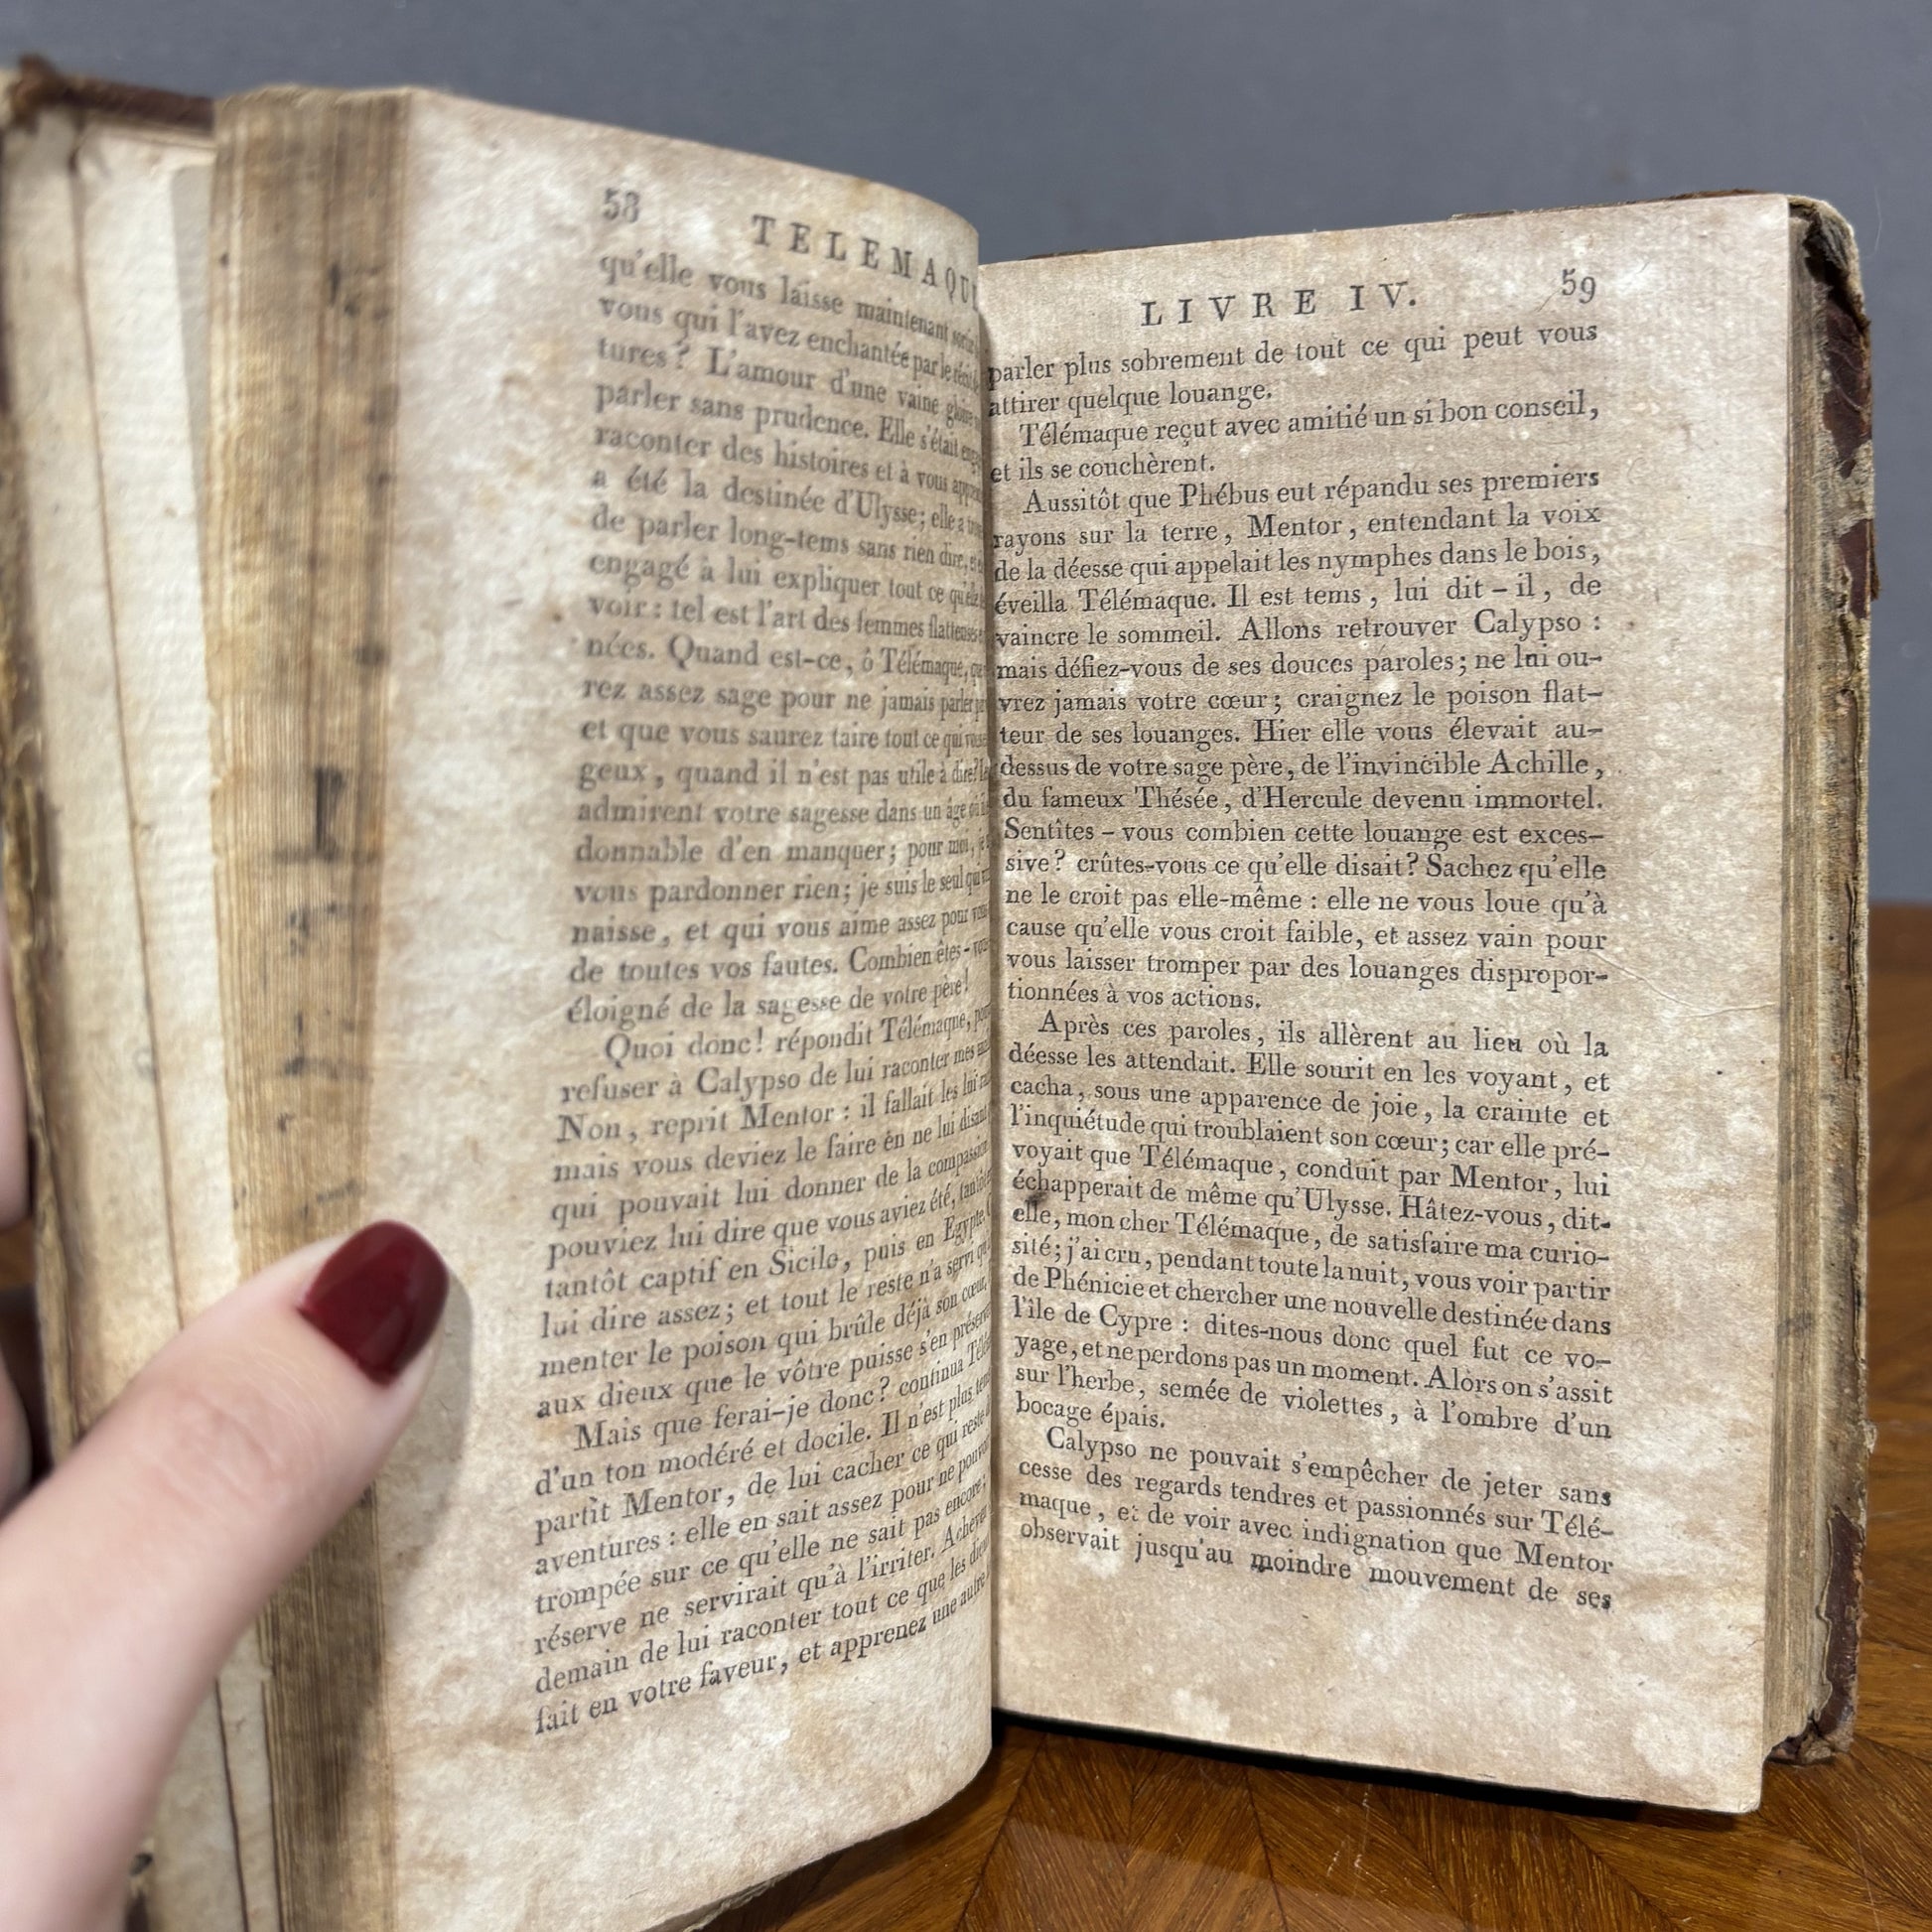 58
TELEMAQU
qu'elle vous laisse maintenant
vous qui l'avez enchantée par le
tures? L'amour d'une vaine
parler sans prudence. Elle s'était
raconter des histoires et à vous
a été la destinée d'Ulysse; elle a
de parler long-tems sans rien dire,
engagé à lui expliquer tout ce
voir: tel est l'art des femmes flatteuses
nées. Quand est-ce, ô Télémaque,
rez assez sage pour ne jamais parler
et que vous saurez taire tout ce qui
geux, quand il n'est pas utile à dire?
admirent votre sagesse dans un âge
donnable d'en manquer; pour moi,
vous pardonner rien; je suis le seul
naisse, et qui vous aime assez pour
de toutes vos fautes. Combien êtes-
éloigné de la sagesse de votre père!
Quoi donc! répondit Télémaque,
refuser à Calypso de lui raconter mes
Non, reprit Mentor: il fallait les lui
mais vous deviez le faire en ne lui disant
qui pouvait lui donner de la compassion.
pouviez lui dire que vous aviez été,
tantôt captif en Sicile, puis en Egypte.
lui dire assez; et tout le reste n'a servi
menter le poison qui brûle déjà son cœur.
aux dieux que le vôtre puisse s'en
Mais que ferai-je donc? continua
d'un ton modéré et docile. Il n'est plus
partit Mentor, de lui cacher ce qui reste
aventures: elle en sait assez pour ne
trompée sur ce qu'elle ne sait pas encore;
réserve ne servirait qu'à l'irriter. Achevez
demain de lui raconter tout ce que les
fait en votre faveur, et apprenez une autre
LIVRE IV.
59
parler plus sobrement de tout ce qui peut vous
attirer quelque louange.
Télémaque reçut avec amitié un si bon conseil,
et ils se couchèrent.
Aussitôt que Phébus eut répandu ses premiers
rayons sur la terre, Mentor, entendant la voix
de la déesse qui appelait les nymphes dans le bois,
éveilla Télémaque. Il est tems, lui dit-il, de
vaincre le sommeil. Allons retrouver Calypso:
mais défiez-vous de ses douces paroles; ne lui ou-
vrez jamais votre cœur; craignez le poison flat-
teur de ses louanges. Hier elle vous élevait au-
dessus de votre sage père, de l'invincible Achille,
du fameux Thésée, d'Hercule devenu immortel.
Sentîtes-vous combien cette louange est exces-
sive? crûtes-vous ce qu'elle disait? Sachez qu'elle
ne le croit pas elle-même: elle ne vous loue qu'à
cause qu'elle vous croit faible, et assez vain pour
vous laisser tromper par des louanges dispropor-
tionnées à vos actions.
Après ces paroles, ils allèrent au lieu où la
déesse les attendait. Elle sourit en les voyant, et
cacha, sous une apparence de joie, la crainte et
l'inquiétude qui troublaient son cœur; car elle pré-
voyait que Télémaque, conduit par Mentor, lui
échapperait de même qu'Ulysse. Hâtez-vous, dit-
elle, mon cher Télémaque, de satisfaire ma curio-
sité; j'ai cru, pendant toute la nuit, vous voir partir
de Phénicie et chercher une nouvelle destinée dans
l'île de Cypre: dites-nous donc quel fut ce vo-
yage, et ne perdons pas un moment. Alors on s'assit
sur l'herbe, semée de violettes, à l'ombre d'un
bocage épais.
Calypso ne pouvait s'empêcher de jeter sans
cesse des regards tendres et passionnés sur Télé-
maque, et de voir avec indignation que Mentor
observait jusqu'au moindre mouvement de ses